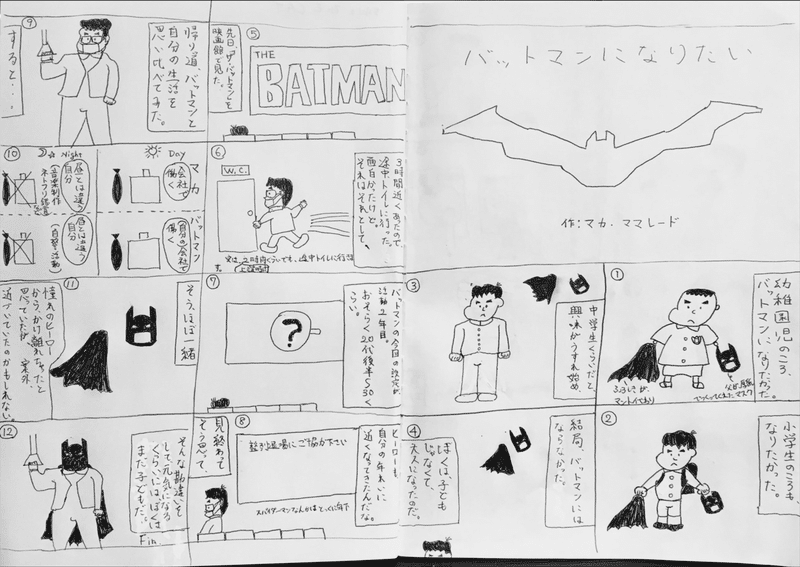 バットマンになりたい
作:マカ・ママレード
①
幼稚園児のころ、
バットマンになりたかった。
ふろしきが
マントがわり
父が服飾
でつくってくれたマスク
②
小学生のころも、
なりたかった。
③
中学生くらいだと
興味がうすれ始め、
④
結局、バットマンには
ならなかった。
ぼくは、子ども
じゃなくて、
大人になったのだ。
⑤
先日、「ザ・バットマン」を
映画館で見た。
THE
BATMAN
⑥
3時間近くあったので
途中トイレに行った。
面白かったけど、
それはそれとして、
W.C.
実は、2時間くらいでも、途中トイレに行きます。
(上映時間)
⑦
バットマンの今回の設定が、
活動2年目。
おそらく20代後半~30く
らい。
?
⑧
ヒーローも
自分の年れいに
近くなってきたんだな。
スパイダーマンなんかはとっくに年下
見終わって
そう思って、
⑨
帰り道、バットマンと
自分の生活を
思い比べてみた。
すると・・・
⑩
Day
Night
マカ
会社で
働く
昼とは違う
自分
(音楽制作
ネトフリ鑑賞)
バットマン
自分の会社で
働く
昼とは違う
自分
(自警活動)
⑪
そう、ほぼ一緒
憧れのヒーロー
から、かけ離れちゃったと
思っていたが、案外、
近づいていたのかもしれない。
⑫
そんな勘違いを
して元気になる
くらいには、ぼくは
まだ子どもだ。
Fin